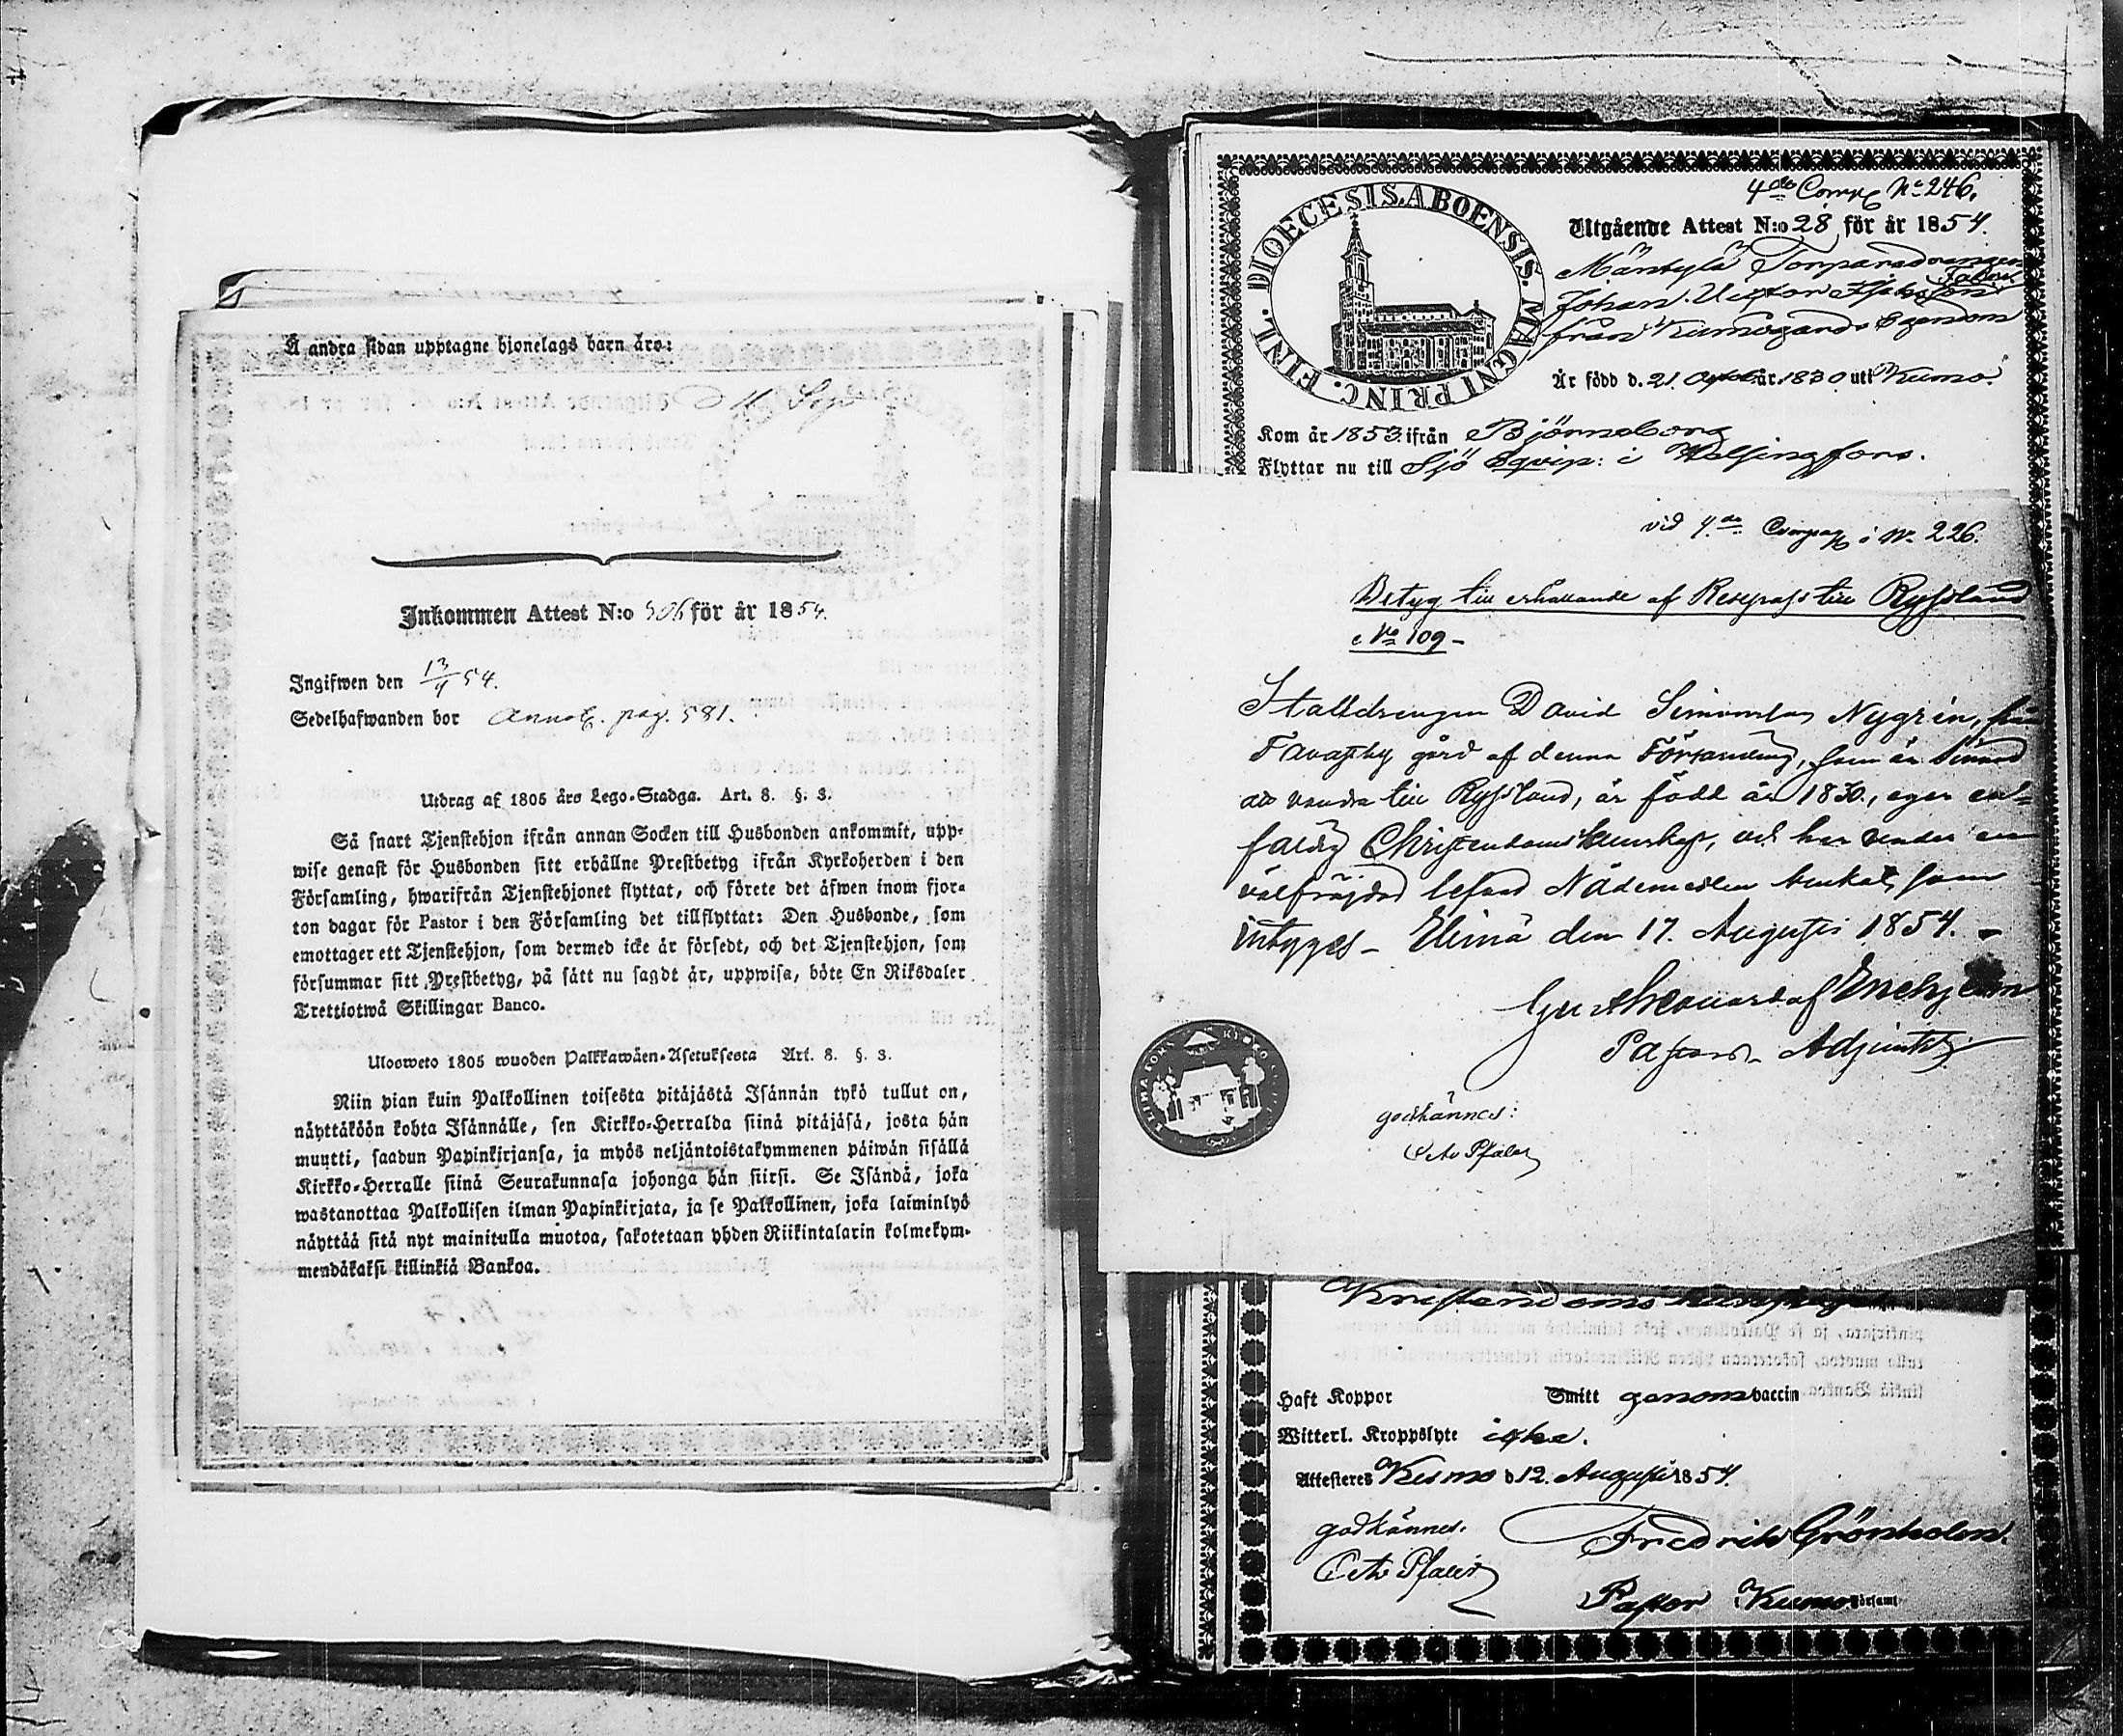 Å andra sidan upptagne hjonelags barn äro:
Inkommen Attest N:o 506 för år 1854.
Ingifwen den 13/9 54.
Sedelhafwanden bor Annot. pag. 581.
Utdrag af 1805 års Lego-Stadga. Art. 8. §. 3.
Så snart Tjenstehjon ifrån annan Socken till Husbonden ankommit, upp-
wise genast för Husbonden sitt erhållne Prestbetyg ifrån Kyrkoherden i den
Församling, hwarifrån Tjenstehjonet flyttat, och förete det äfwen inom fjor-
ton dagar för Pastor i den Församling det tillflyttat: Den Husbonde, som
emottager ett Tjenstehjon, som dermed icke är försedt, och det Tjenstehjon, som
försummar sitt Prestbetyg, på sätt nu sagdt är, uppwisa, böte En Riksdaler
Trettiotwå Skillingar Banco.
Ulosweto 1805 wuoden Palkkawäen-Asetuksesta Art. 8. §. 3.
Niin pian kuin Palkollinen toisesta pitäjästä Isännän tykö tullut on,
näyttäköön kohta Isännälle, sen Kirkko-Herralda siinä pitäjäsä, josta hän
muutti, saadun Papinkirjansa, ja myös neljäntoistakymmenen päiwän sisällä
Kirkko-Herralle siinä Seurakunnasa johonga hän siirsi. Se Isändä, joka
wastanottaa Palkollisen ilman Papinkirjata, ja se Palkollinen, joka laiminlyö
näyttää sitä nyt mainitulla muotoa, sakotetaan yhden Riikintalarin kolmekym-
mendäkaksi killinkiä Bankoa.
4de Comp No 246.
DIOECESIS. ABOENSIS. MAGNI PRINC. FINL.
Utgående Attest N:o 28 för år 1854.
Mäntylä Torparedrängen
Johan Victor
från Kumogårds Egendom
Är född d. 21 år 1830 uti Kumo.
Kom år 1853 ifrån Björneborg
Flyttar nu till Sjö Eqvip: i Helsingfors.
vid 4de Compag i No 226.
Betyg till erhållande af Respass till Ryssland
No 109 –
Stalldrengen David Simonsson Nygrén, från
Tavastby gård af denna Församling, som är sinnad
att vandra till Ryssland, är född år 1830, eger en-
faldig Christendoms kunskap, och har under en
välfräjdad lefnad Nådemedlen bevkat, som
intygas – Elimä den 17. Augusti 1854. –
Pastors Adjunkt
godkännes:
Kristendoms kunskap
Haft Koppor Smitt genom vaccin
Witterl. Kroppslyte icke.
Attesteres Kumo d 12. Augusti 1854.
godkännes.
Fredrik Grönholm.
Pastor i Kumo Församl